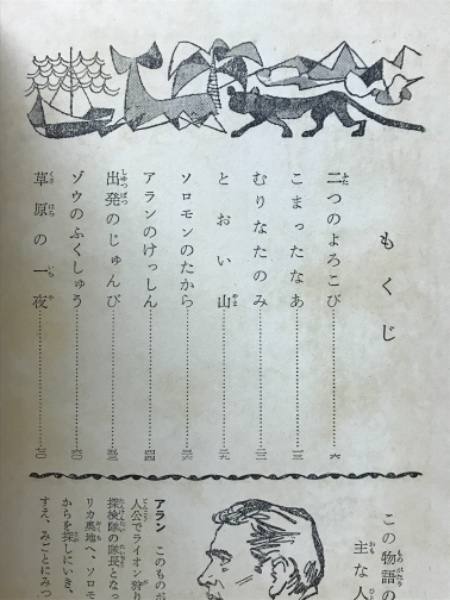 もくじ
二つのよろこび……六
こまったなあ……一三
むりなたのみ……二二
とおい山……二九
ソロモンのたから……三六
アランのけっしん……四四
出発のじゅんび……五三
ゾウのふくしゅう……六〇
草原の一夜……七〇
この物語の
主な人
アラン このものが
人公でライオン狩り
探検隊の隊長とな
リカ奥地へ、ソロモ
からを探しにいき、
すえ、みごとにみつ